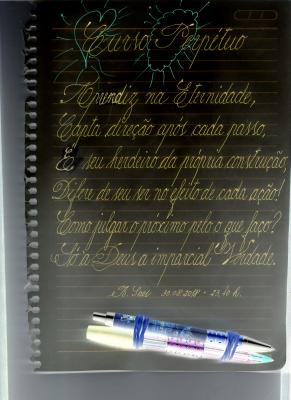 Curso Perpétuo
Aprendiz na Eternidade,
Capta direção após cada passo,
É seu herdeiro da própria construção,
Difere de seu ser no efeito de cada ação!
Como julgar o próximo pelo o que faço?
Só a Deus a imparcial Verdade.
30.08.2018 - 23,40 h.